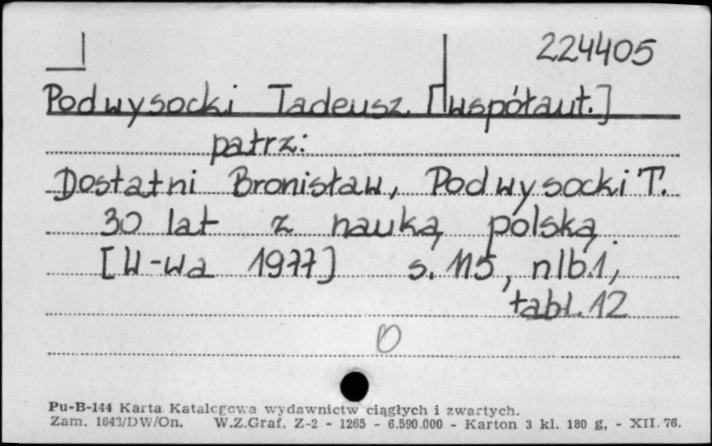 224405
Podwysocki Tadeusz [współaut.]
patrz:
Dostatni Bronisław, Podwysocki T.
30 lat z nauką polską.
[W-wa 1977] s. 115, nlb.1,
tabl. 12
D
Pu-B-144 Karta Katalogowa wydawnictw ciągłych i zwartych.
Zam. 1642/DW/On. W.Z.Graf. Z-2 - 1265 - 6.590.000 - Karton 3 kl. 180 g, - XII. 76.